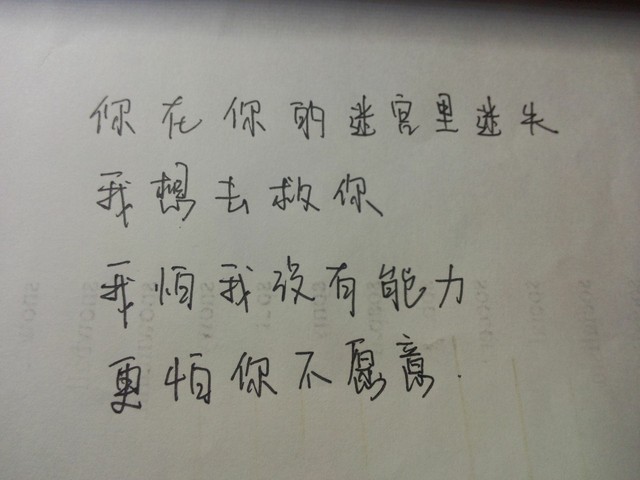 你在你的迷宫里迷失
我想去救你
我怕我没有能力
更怕你不愿意.